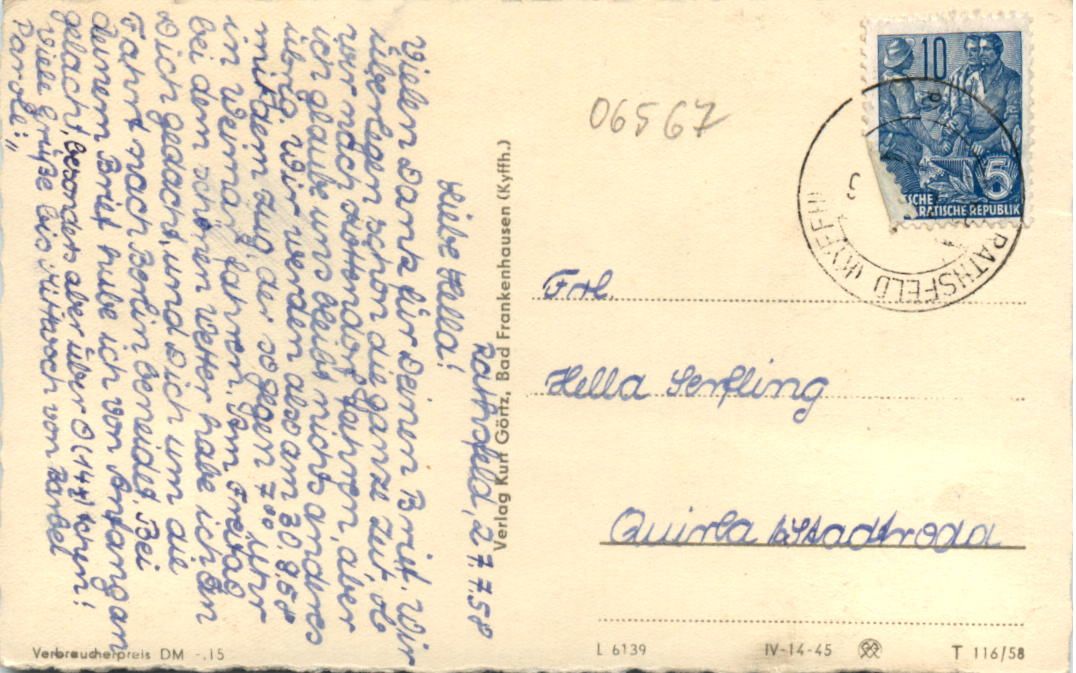 Rathsfeld, 27.7.58
Liebe Hella!
Vielen Dank für Deinen Brief. Wir
überlegen schon die ganze Zeit, ob
wir nach fahren, aber
ich glaube uns bleibt nichts andres
übrig. Wir werden also am 30.8.58
mit dem Zug, der so gegen 7 00 Uhr
in Weimar, fahren. Am Freitag
bei dem schönen Wetter habe ich an
Dich gedacht, und Dich um die
Fahrt nach Berlin beneidet. Bei
deinem Brief habe ich von Anfang an
gelacht, besonders aber über
Viele Grüße bis Mittwoch von Bärbel
Parole: „
Verbraucherpreis DM -.15
Verlag Kurt Görtz, Bad Frankenhausen (Kyffh.)
06567
10
5
SCHE
RATISCHE REPUBLIK
RATHSFELD (KYFFH
Frl.
Hella Serfling
Quirla b/Stadtroda
L 6139
IV-14-45
T 116/58